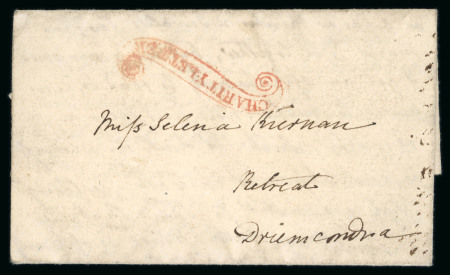 CHARITY LETTER
Miss Selena Kiernan
Retreat
Drumcondra